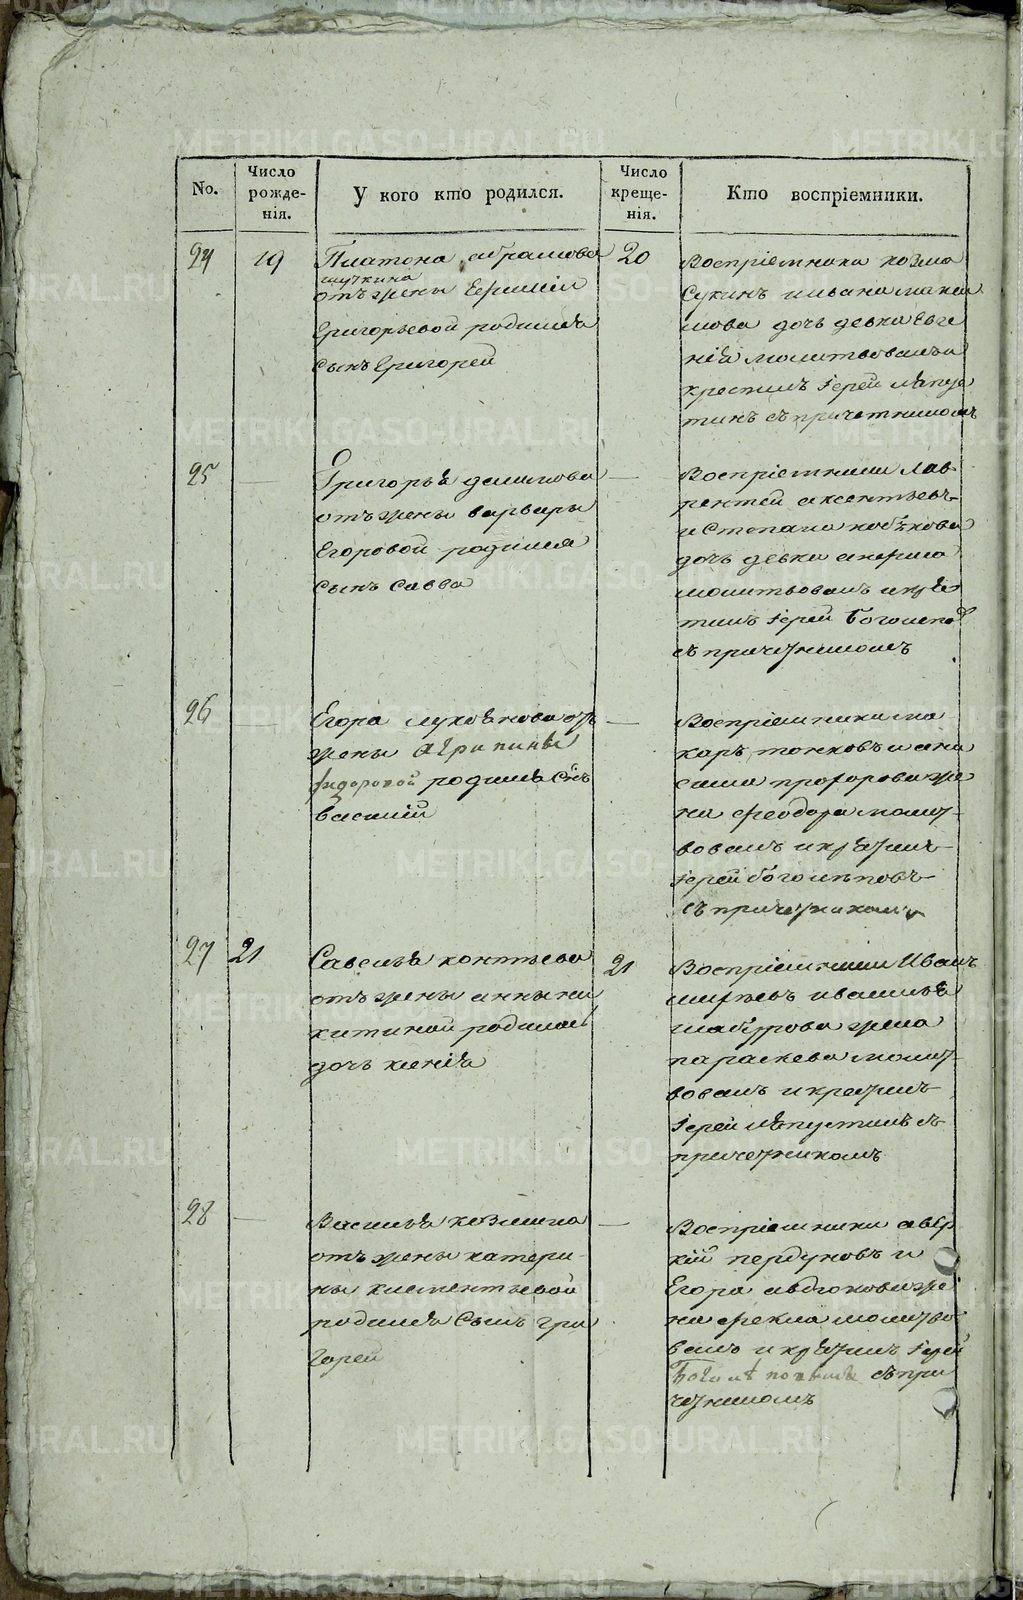 METRIKI.GASO-URAL.RU
No.
Число рожде-нія.
У кого кто родился.
Число креще-нія.
Кто воспріемники.
24
19
Платона абрамова
щучкина
отъ жены Ефимiи
Григорьевой родился
сынъ Григорей
20
Воспріемники козма
Сукинъ и ивана макси
мова дочь девка Евге
нія молитвовалъ и
крестилъ іерей лѣпуз
тинъ съ причетникомъ
25
—
Григорья
отъ жены варвары
Егоровой родился
сынъ савва
—
Воспріемники лав
рентей аксентьевъ
и Степана кобякова
дочь девка
молитвовалъ и кре
тилъ іерей Боголепов
съ причетникомъ
26
—
Егора лукоянова отъ
жены агрипины
фидоровой родился снъ
василій
—
Воспріемники ма
каръ токковъ и ана
прохорова же
на феодора молит
вовалъ и крестилъ
іерей боголѣповъ
съ причетникомъ
27
21
Савелья коптьева
отъ жены анны ни
китиной родилась
дочь ксенія
21
Воспріемники Иванъ
и василья
жена
параскева молит
вовалъ и крестилъ
іерей лѣпустинъ съ
причетникомъ
28
—
Василья козмина
отъ жены катери
ны климентьевой
родился сынъ гри
горей
—
Воспріемники авер
кій пердуновъ и
Егора авдокова же
на фекла молитво
валъ и крестилъ іерей
съ при
четникомъ